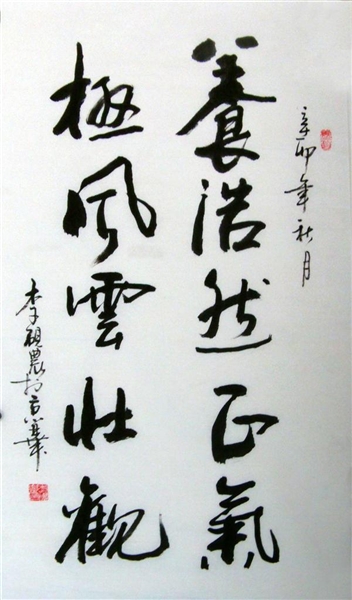 辛卯年秋月
養浩然正氣
極風雲壯觀
李祖農於京華